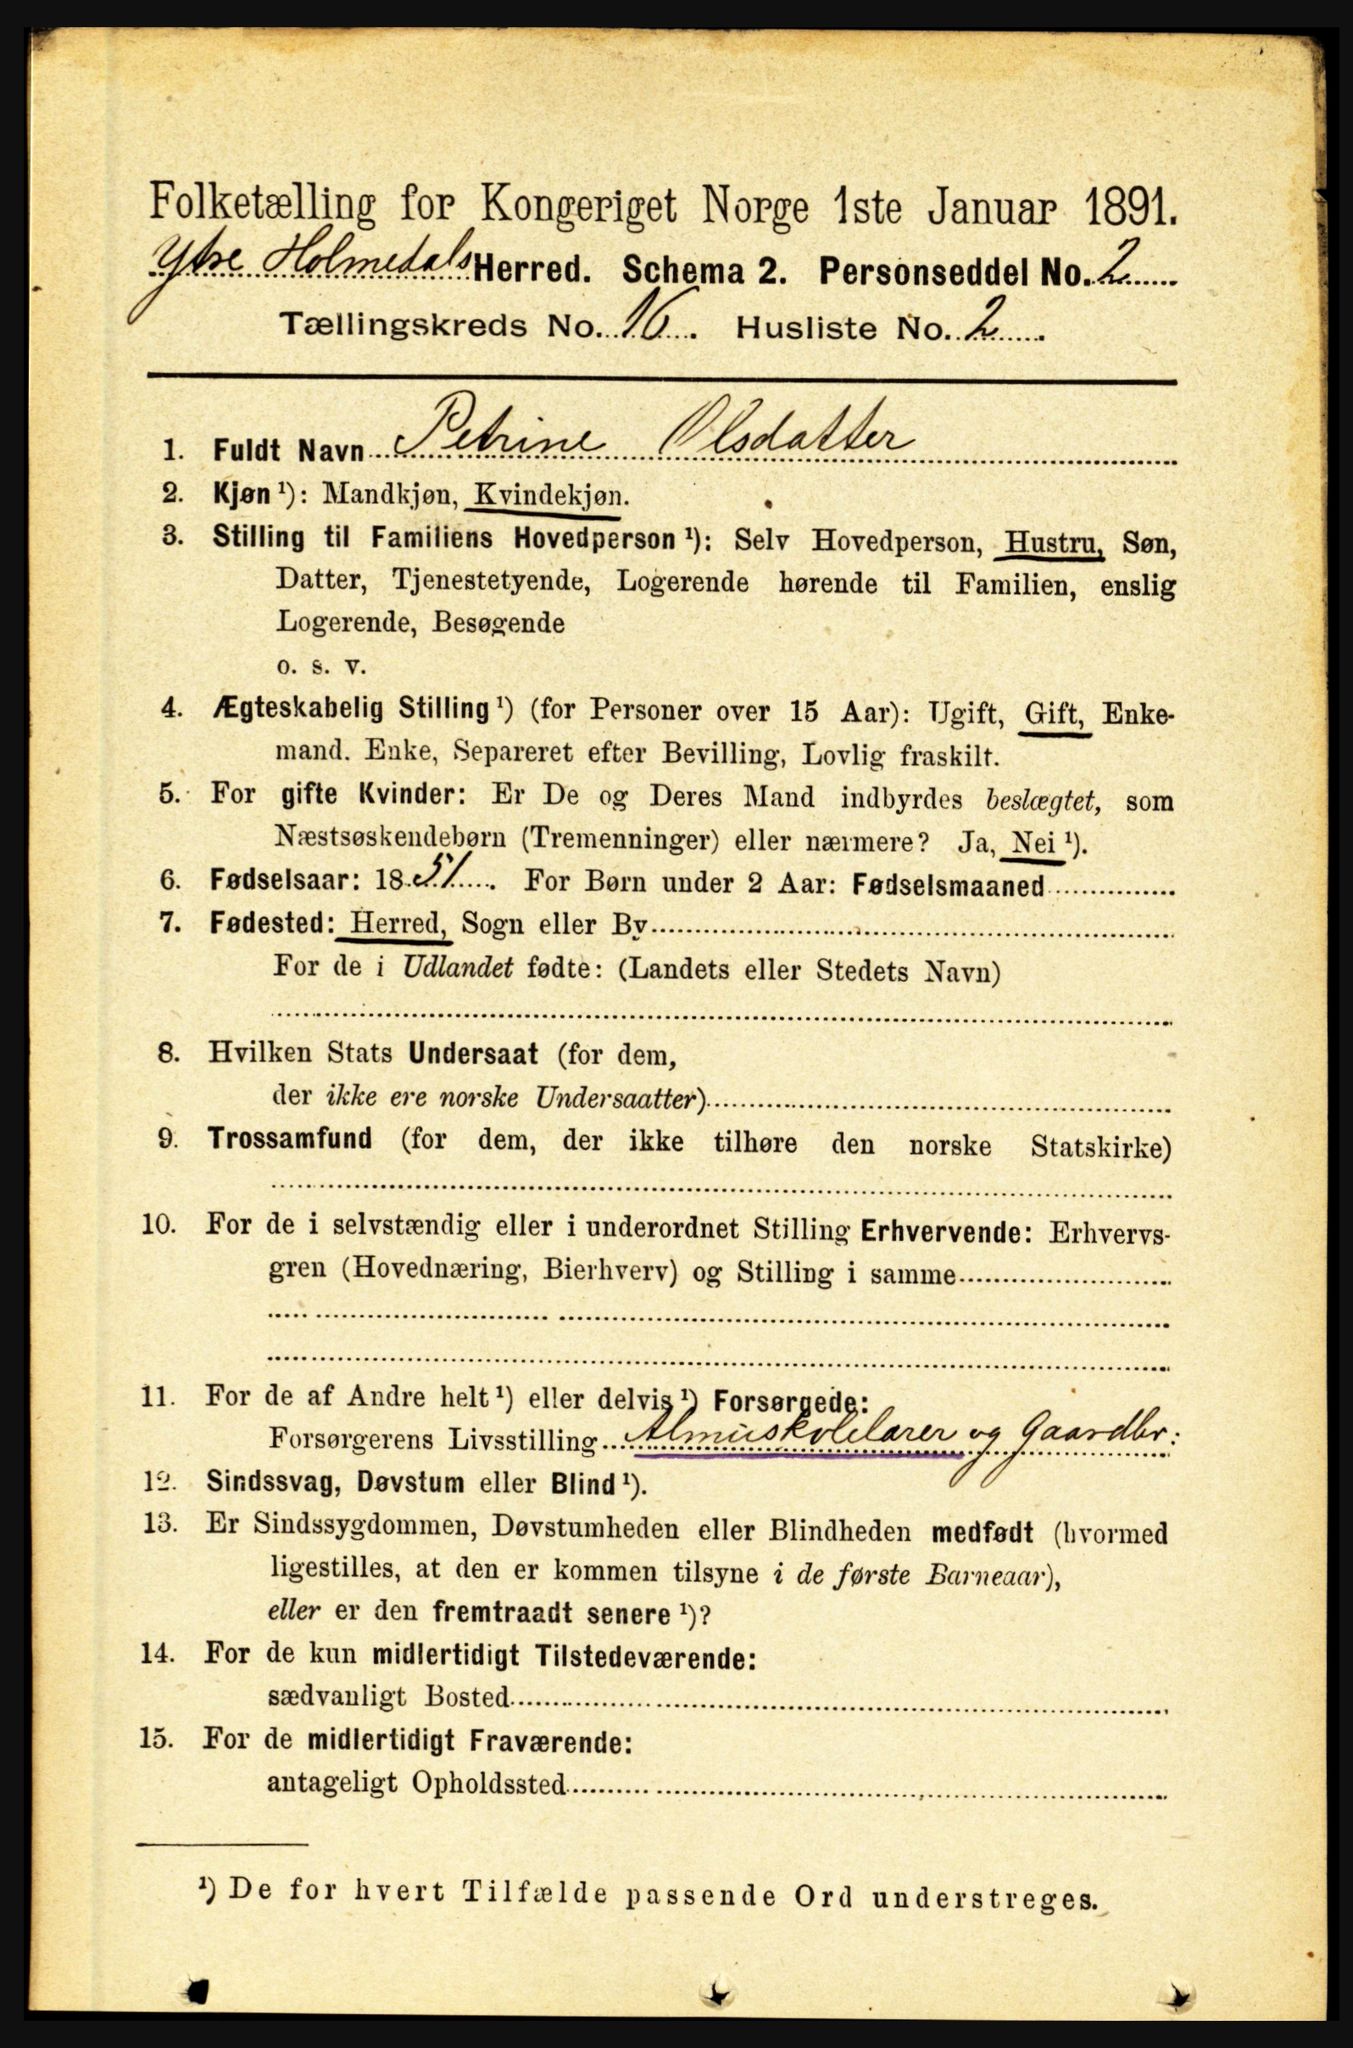 Folketælling for Kongeriget Norge 1ste Januar 1891.
Ytre Holmedals Herred. Schema 2. Personseddel No. 2
Tællingskreds No. 16. Husliste No. 2
1. Fuldt Navn Petrine Olsdatter
2. Kjøn ¹): Mandkjøn, Kvindekjøn.
3. Stilling til Familiens Hovedperson ¹): Selv Hovedperson, Hustru, Søn,
Datter, Tjenestetyende, Logerende hørende til Familien, enslig
Logerende, Besøgende
o. s. v.
4. Ægteskabelig Stilling ¹) (for Personer over 15 Aar): Ugift, Gift, Enke-
mand. Enke, Separeret efter Bevilling, Lovlig fraskilt.
5. For gifte Kvinder: Er De og Deres Mand indbyrdes beslægtet, som
Næstsøskendebørn (Tremenninger) eller nærmere? Ja, Nei ¹).
6. Fødselsaar: 1851. For Børn under 2 Aar: Fødselsmaaned
7. Fødested: Herred, Sogn eller By
For de i Udlandet fødte: (Landets eller Stedets Navn)
8. Hvilken Stats Undersaat (for dem,
der ikke ere norske Undersaatter)
9. Trossamfund (for dem, der ikke tilhøre den norske Statskirke)
10. For de i selvstændig eller i underordnet Stilling Erhvervende: Erhvervs-
gren (Hovednæring, Bierhverv) og Stilling i samme
11. For de af Andre helt ¹) eller delvis ¹) Forsørgede:
Forsørgerens Livsstilling Almuskolelærer og Gaardbr:
12. Sindssvag, Døvstum eller Blind ¹).
13. Er Sindssygdommen, Døvstumheden eller Blindheden medfødt (hvormed
ligestilles, at den er kommen tilsyne i de første Barneaar),
eller er den fremtraadt senere ¹)?
14. For de kun midlertidigt Tilstedeværende:
sædvanligt Bosted
15. For de midlertidigt Fraværende:
antageligt Opholdssted
¹) De for hvert Tilfælde passende Ord understreges.